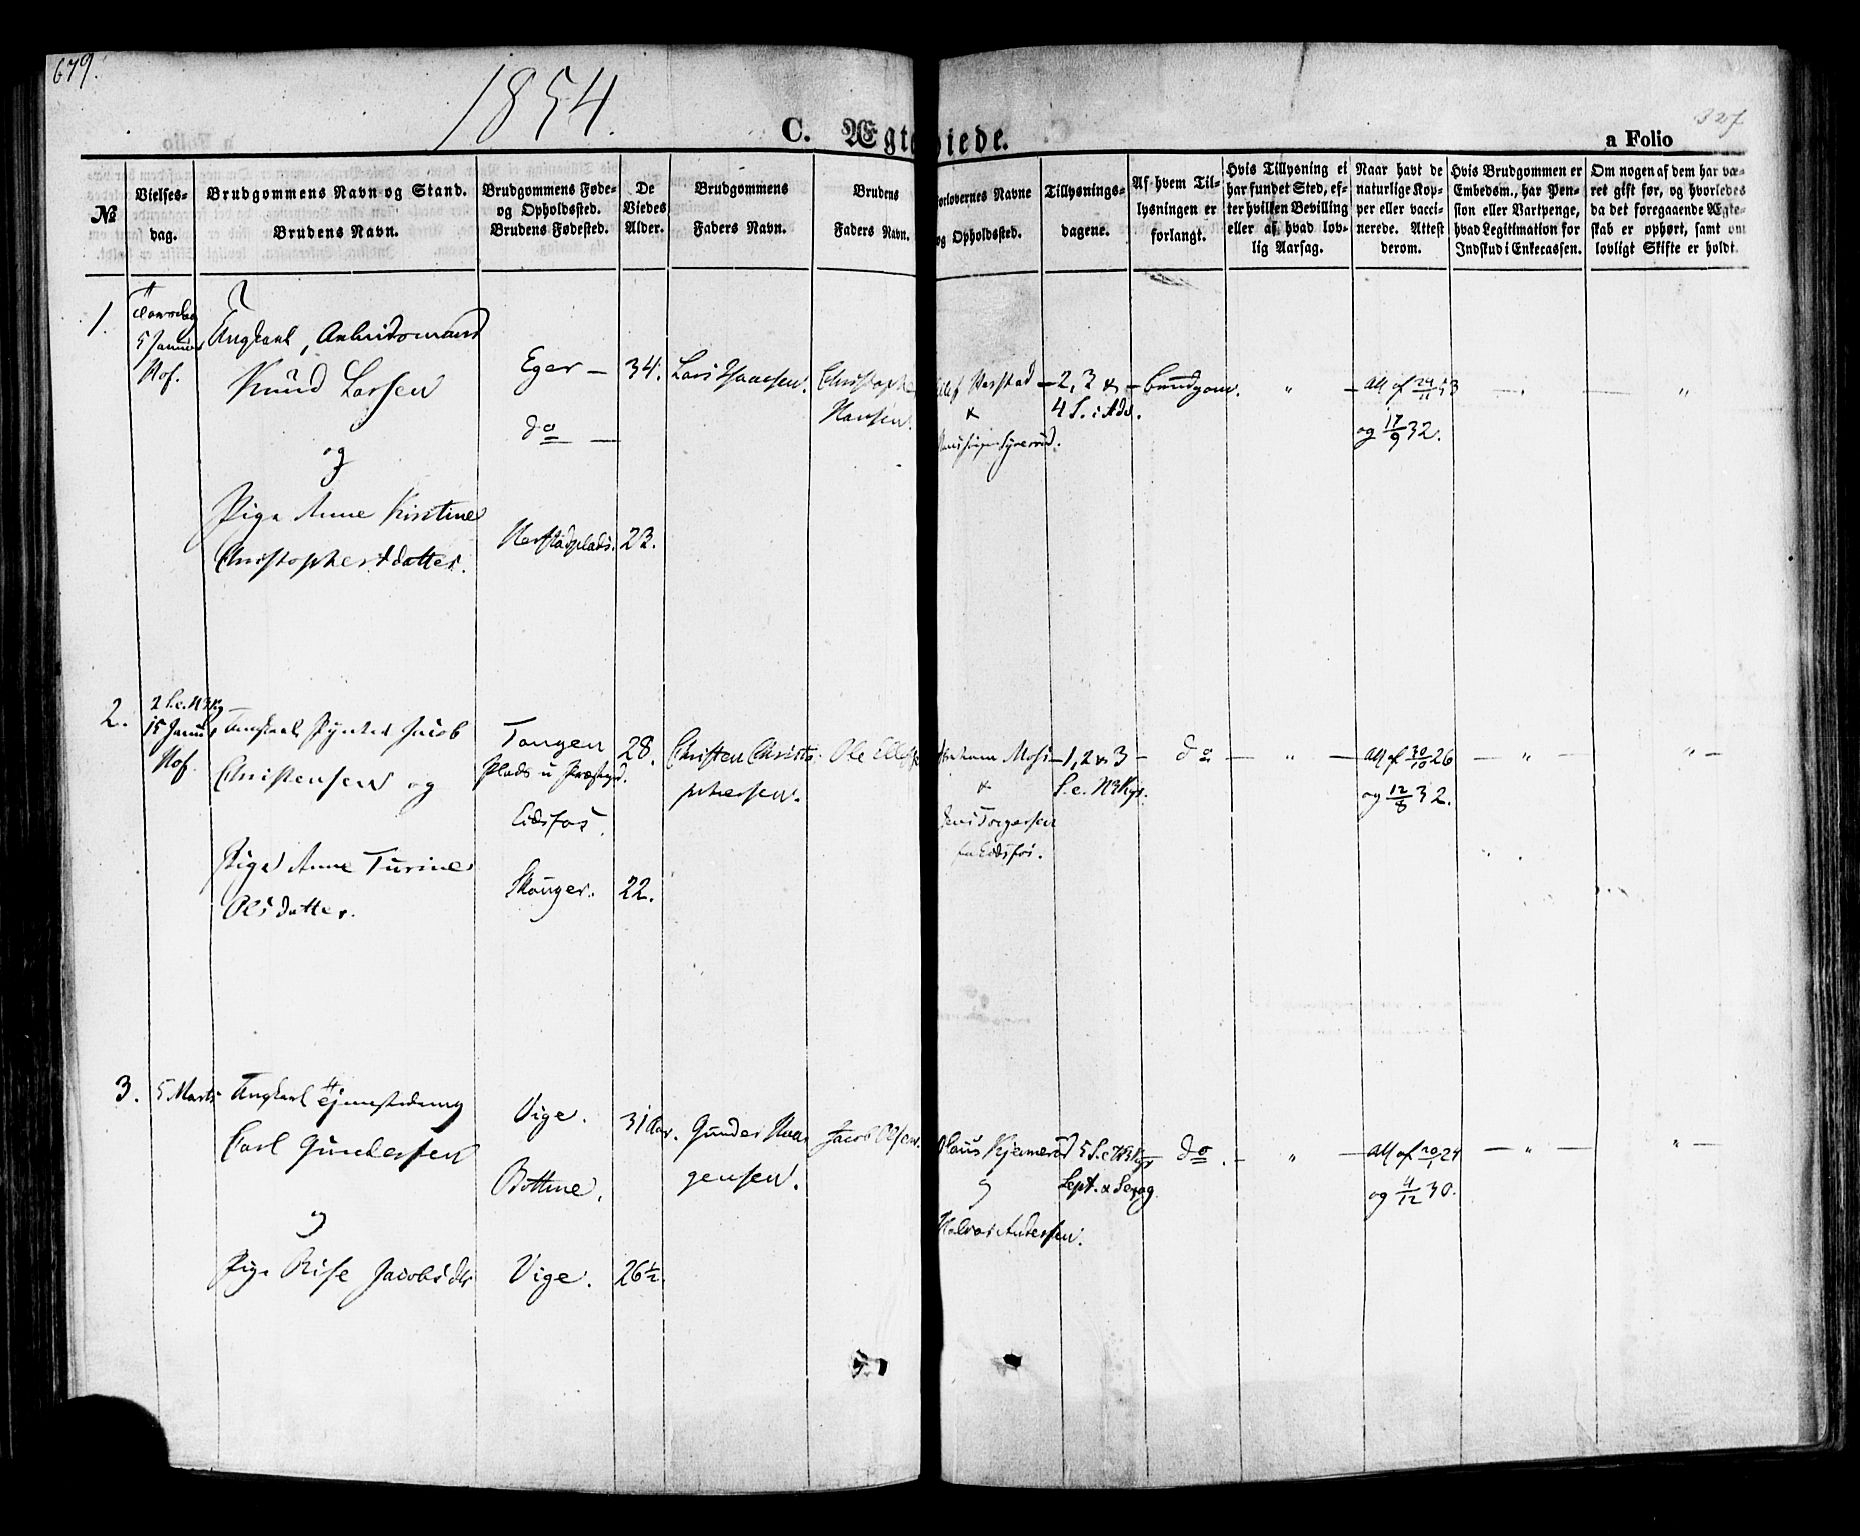 679.
1854.
327
C. Ægteviede.
a Folio
№
Vielses-
dag.
Brudgommens Navn og Stand.
Brudens Navn.
Brudgommens Føde-
og Opholdssted.
Brudens Fødested.
De
Viedes
Alder.
Brudgommens
Faders Navn.
Brudens
Faders Navn.
Forlovernes Navne
og Opholdssted.
Tillysnings-
dagene.
Af hvem Til-
lysningen er
forlangt.
Hvis Tillysning ei
har fundet Sted, ef-
ter hvilken Bevilling
eller af hvad lov-
lig Aarsag.
Naar havt de
naturlige Kop-
per eller vacci-
nerede. Attest
derom.
Hvis Brudgommen er
Embedsm., har Pen-
sion eller Vartpenge,
hvad Legitimation for
Indskud i Enkecassen.
Om nogen af dem har væ-
ret gift før, og hvorledes
da det foregaaende Ægte-
skab er ophørt, samt om
lovligt Skifte er holdt.
1.
Torsdag
5 Januar
Hof.
Ungkarl, Arbeidsmand
Knud Larsen
og
Pige Anne Kirstine
Christophersdatter.
Eger —
do —
34.
23.
Lars Isaacsen.
Christopher
Hansen.
— 2, 3 &
4 S. i Adv.
— Brudgom.
"
Att af 24/11 53
og 17/9 32.
"
2.
2 S. e. H3Kg
15 Januar
Hof.
Ungkarl Jacob
Christensen og
Pige Anne Turine
Olsdatter.
Tangen
Plads u Præstegd.
Eidsfos.
Skouger.
28.
22.
Christen Christo-
phersen.
Ole
Abraham Moss
&
Jens Torgersen
Eidsfos.
— 1, 2 & 3
S. e. H3Kgs.
— do —
"
Att af 30/10 26
og 12/8 32.
"
" —
3.
5 Marts
Ungkarl Tjenestedreng
Carl Gundersen
og
Pige Rise Jacobsdtr
Vige.
Bottne.
Vige.
31 Aar.
26 1/2
Gunder Haa-
gensen.
Jacob Olsen.
Claus Kjemerød
og
Halvor Andersen.
5 S. e H3Kgs
Sept. & Sexag.
do. —
"
Att af 20/1 24
og 4/12 30.
"
" —